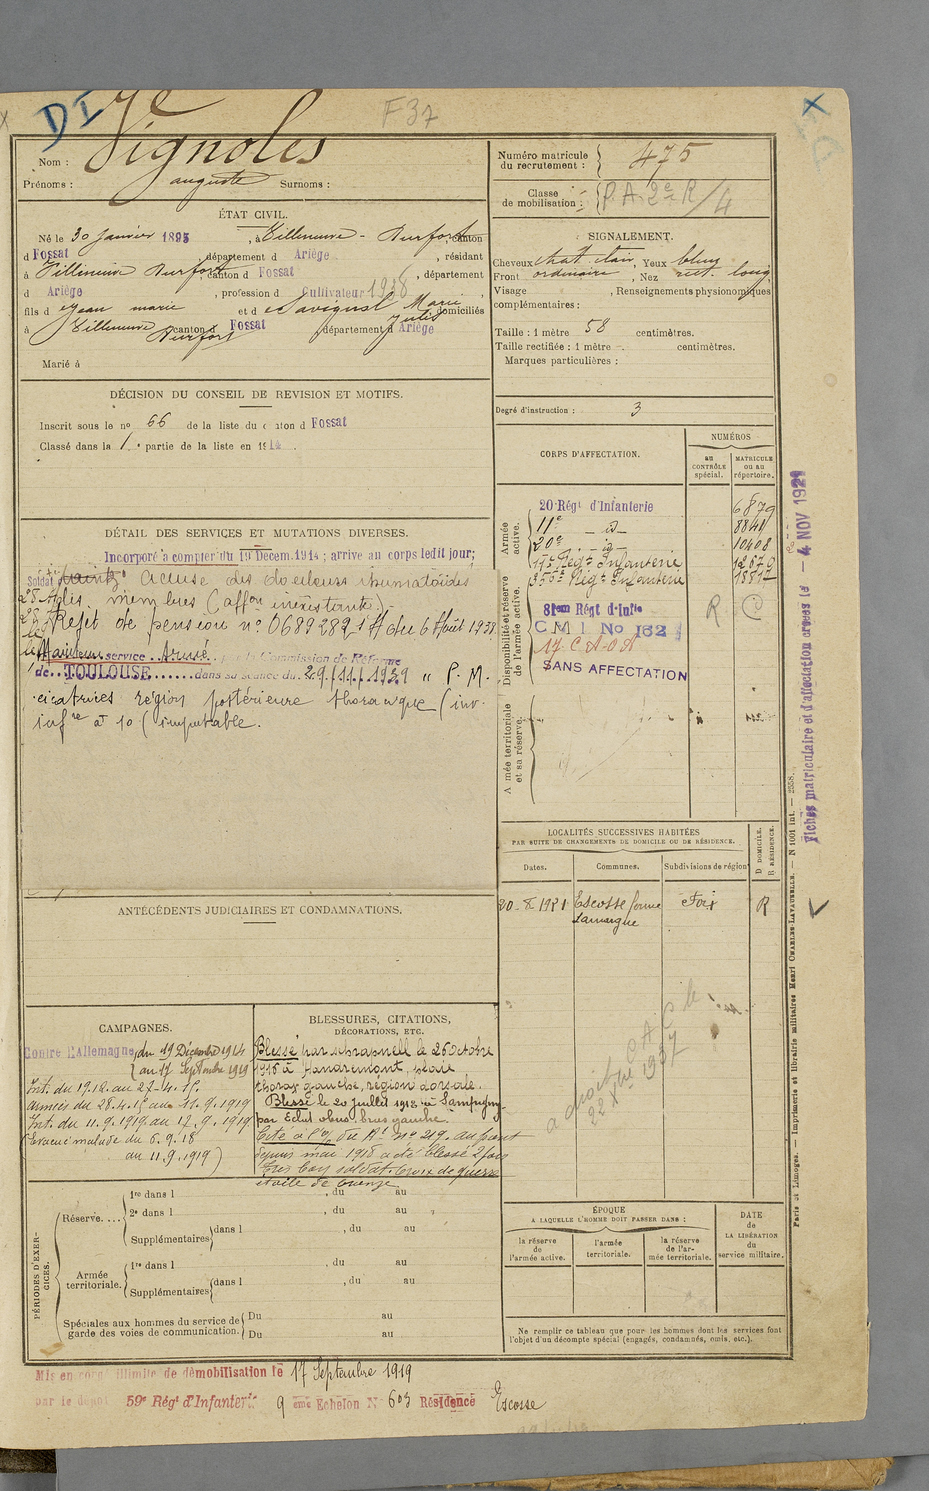 DI
F37
Nom : Vignoles
Prénoms : auguste Surnoms :
ÉTAT CIVIL.
Né le 30 janvier 1895, à Villeneuve-Durfort, canton
d Fossat, département d Ariège, résidant
à Villeneuve Durfort, canton d Fossat, département
d Ariège, profession d Cultivateur 1938
fils d Jean marie et d Marie Julie domiciliés
à Villeneuve Durfort canton d Fossat département d Ariège
Marié à
DÉCISION DU CONSEIL DE REVISION ET MOTIFS.
Inscrit sous le no 66 de la liste du canton d Fossat
Classé dans la 1re partie de la liste en 1914.
DÉTAIL DES SERVICES ET MUTATIONS DIVERSES.
Incorporé à compter du 19 Décem. 1914 ; arrive au corps ledit jour;
Soldat Accuse des douleurs rhumatoïdes
des membres (affon inexistante).
Rejet de pension no 0689282 du 6 Août 1938
Maintenu service Armé par la Commission de Réforme
de TOULOUSE dans sa séance du 29/11/1939 " P. M.
cicatrices région postérieure thoracique (inv.
infre à 10 (imputable.
ANTÉCÉDENTS JUDICIAIRES ET CONDAMNATIONS.
CAMPAGNES.
Contre l'Allemagne du 19 Décembre 1914
au 17 Septembre 1919
Int. du 19.12. au 27.4.15
armées du 28.4.15 au 11.9.1919
Int. du 11.9.1919 au 17.9.1919
(Evacué malade du 6.9.18
au 11.9.1919)
BLESSURES, CITATIONS,
DÉCORATIONS, ETC.
Blessé par schrapnell le 26 octobre
1916 à Haudremont, plaie
thorax gauche, région dorsale.
Blessé le 20 juillet 1918 à
par Eclat obus, bras gauche.
Cité à l'o/ du Rt no 219. au front
depuis mai 1915 a été blessé 2 fois
Très bon soldat. Croix de guerre
étoile de bronze
PÉRIODES D'EXERCICES.
Réserve....
1re dans l , du au
2e dans l , du au
Supplémentaires dans l , du au
Armée territoriale.
1re dans l , du au
Supplémentaires dans l , du au
Spéciales aux hommes du service de garde des voies de communication.
Du au
Du au
Mis en congé illimité de démobilisation le 17 Septembre 1919
par le dépôt 59e Régt d'Infanterie 9 ème Echelon No 603 Résidence Escosse
Numéro matricule
du recrutement : 475
Classe
de mobilisation : P. A. 2e R/4
SIGNALEMENT.
Cheveux chat. clair, Yeux bleus
Front ordinaire, Nez rect. long
Visage , Renseignements physionomiques
complémentaires :
Taille : 1 mètre 58 centimètres.
Taille rectifiée : 1 mètre centimètres.
Marques particulières :
Degré d'instruction : 3
CORPS D'AFFECTATION.
NUMÉROS
au
CONTRÔLE
spécial.
MATRICULE
ou au
répertoire.
Armée
active.
20 Régt d'Infanterie 6879
11e _id_ 8841
20e _id_ 10408
11e Régt Infanterie 12679
Régt Infanterie
Disponibilité et réserve
de l'armée active.
81em Régt d'Infie R
C M I No 162
17 C.A.O.A
SANS AFFECTATION
Armée territoriale
et sa réserve.
LOCALITÉS SUCCESSIVES HABITÉES
PAR SUITE DE CHANGEMENTS DE DOMICILE OU DE RÉSIDENCE.
Dates.
Communes.
Subdivisions de région
D DOMICILE.
R RÉSIDENCE.
20-X 1921 Escosse ferme Foix R
Lamargue
a droit C A C le
22 Xbre 1937
ÉPOQUE
A LAQUELLE L'HOMME DOIT PASSER DANS :
la réserve
de
l'armée active.
l'armée
territoriale.
la réserve
de l'ar-
mée territoriale.
DATE
de
LA LIBÉRATION
du
service militaire.
Ne remplir ce tableau que pour les hommes dont les services font
l'objet d'un décompte spécial (engagés, condamnés, omis, etc.).
Fiches matriculaire et d'affectation créées le 4 NOV 1921
Paris et Limoges. — Imprimerie et librairie militaires Henri CHARLES-LAVAUZELLE. — N 1001 int. — 2558.